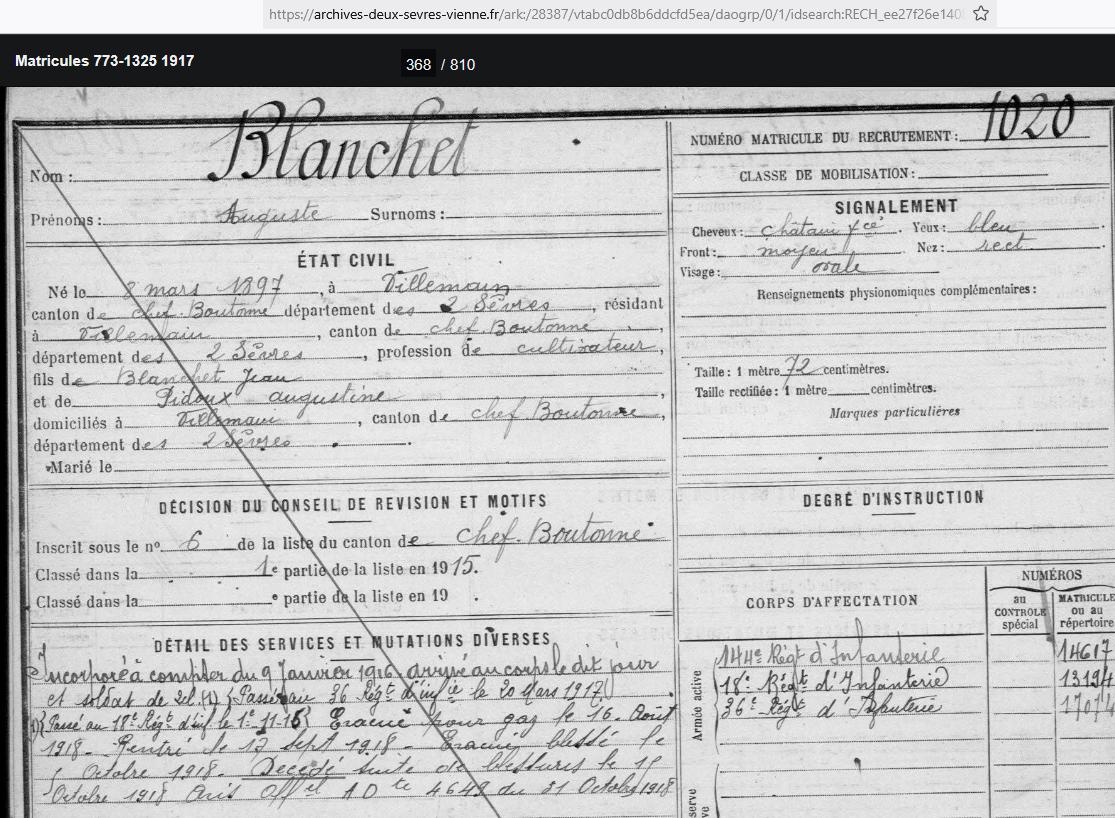 https://archives-deux-sevres-vienne.fr/ark:/28387/vtabc0db8b6ddcfd5ea/daogrp/0/1/idsearch:RECH_ee27f26e140
Matricules 773-1325 1917
368 / 810
Nom : Blanchet
Prénoms : Auguste Surnoms :
ÉTAT CIVIL
Né le 8 mars 1897, à Villemain
canton de chef-Boutonne département des 2 Sèvres, résidant
à Villemain, canton de chef-Boutonne,
département des 2 Sèvres, profession de cultivateur,
fils de Blanchet Jean
et de Pidoux augustine,
domiciliés à Villemain, canton de chef Boutonne,
département des 2 Sèvres.
Marié le
DÉCISION DU CONSEIL DE REVISION ET MOTIFS
Inscrit sous le no. 6 de la liste du canton de chef-Boutonne
Classé dans la 1e partie de la liste en 1915.
Classé dans la e partie de la liste en 19 .
DÉTAIL DES SERVICES ET MUTATIONS DIVERSES
Incorporé à compter du 9 Janvier 1916 arrivé au corps le dit jour
et soldat de 2cl. (1) Passé au 36 Régt d'infie le 20 Mars 1917
(1) Passé au 18e Régt d'inf le 1e-11-16 Evacué pour gaz le 16 Août
1918 - Rentré le 13 Sept 1918 - Evacué blessé le
Octobre 1918 - Décédé suite de blessures le
Octobre 1918 Avis offel 4649 du 31 Octobre 1918
NUMÉRO MATRICULE DU RECRUTEMENT : 1020
CLASSE DE MOBILISATION :
SIGNALEMENT
Cheveux : châtain fcé. Yeux : bleu.
Front : moyen Nez : rect.
Visage : ovale
Renseignements physionomiques complémentaires :
Taille : 1 mètre 72 centimètres.
Taille rectifiée : 1 mètre centimètres.
Marques particulières
DEGRÉ D'INSTRUCTION
CORPS D'AFFECTATION
NUMÉROS
au CONTROLE spécial
MATRICULE ou au répertoire
Armée active
144e Régt d'Infanterie 14617
18e Régt d'Infanterie 13194
36e Régt d'Infanterie 17074